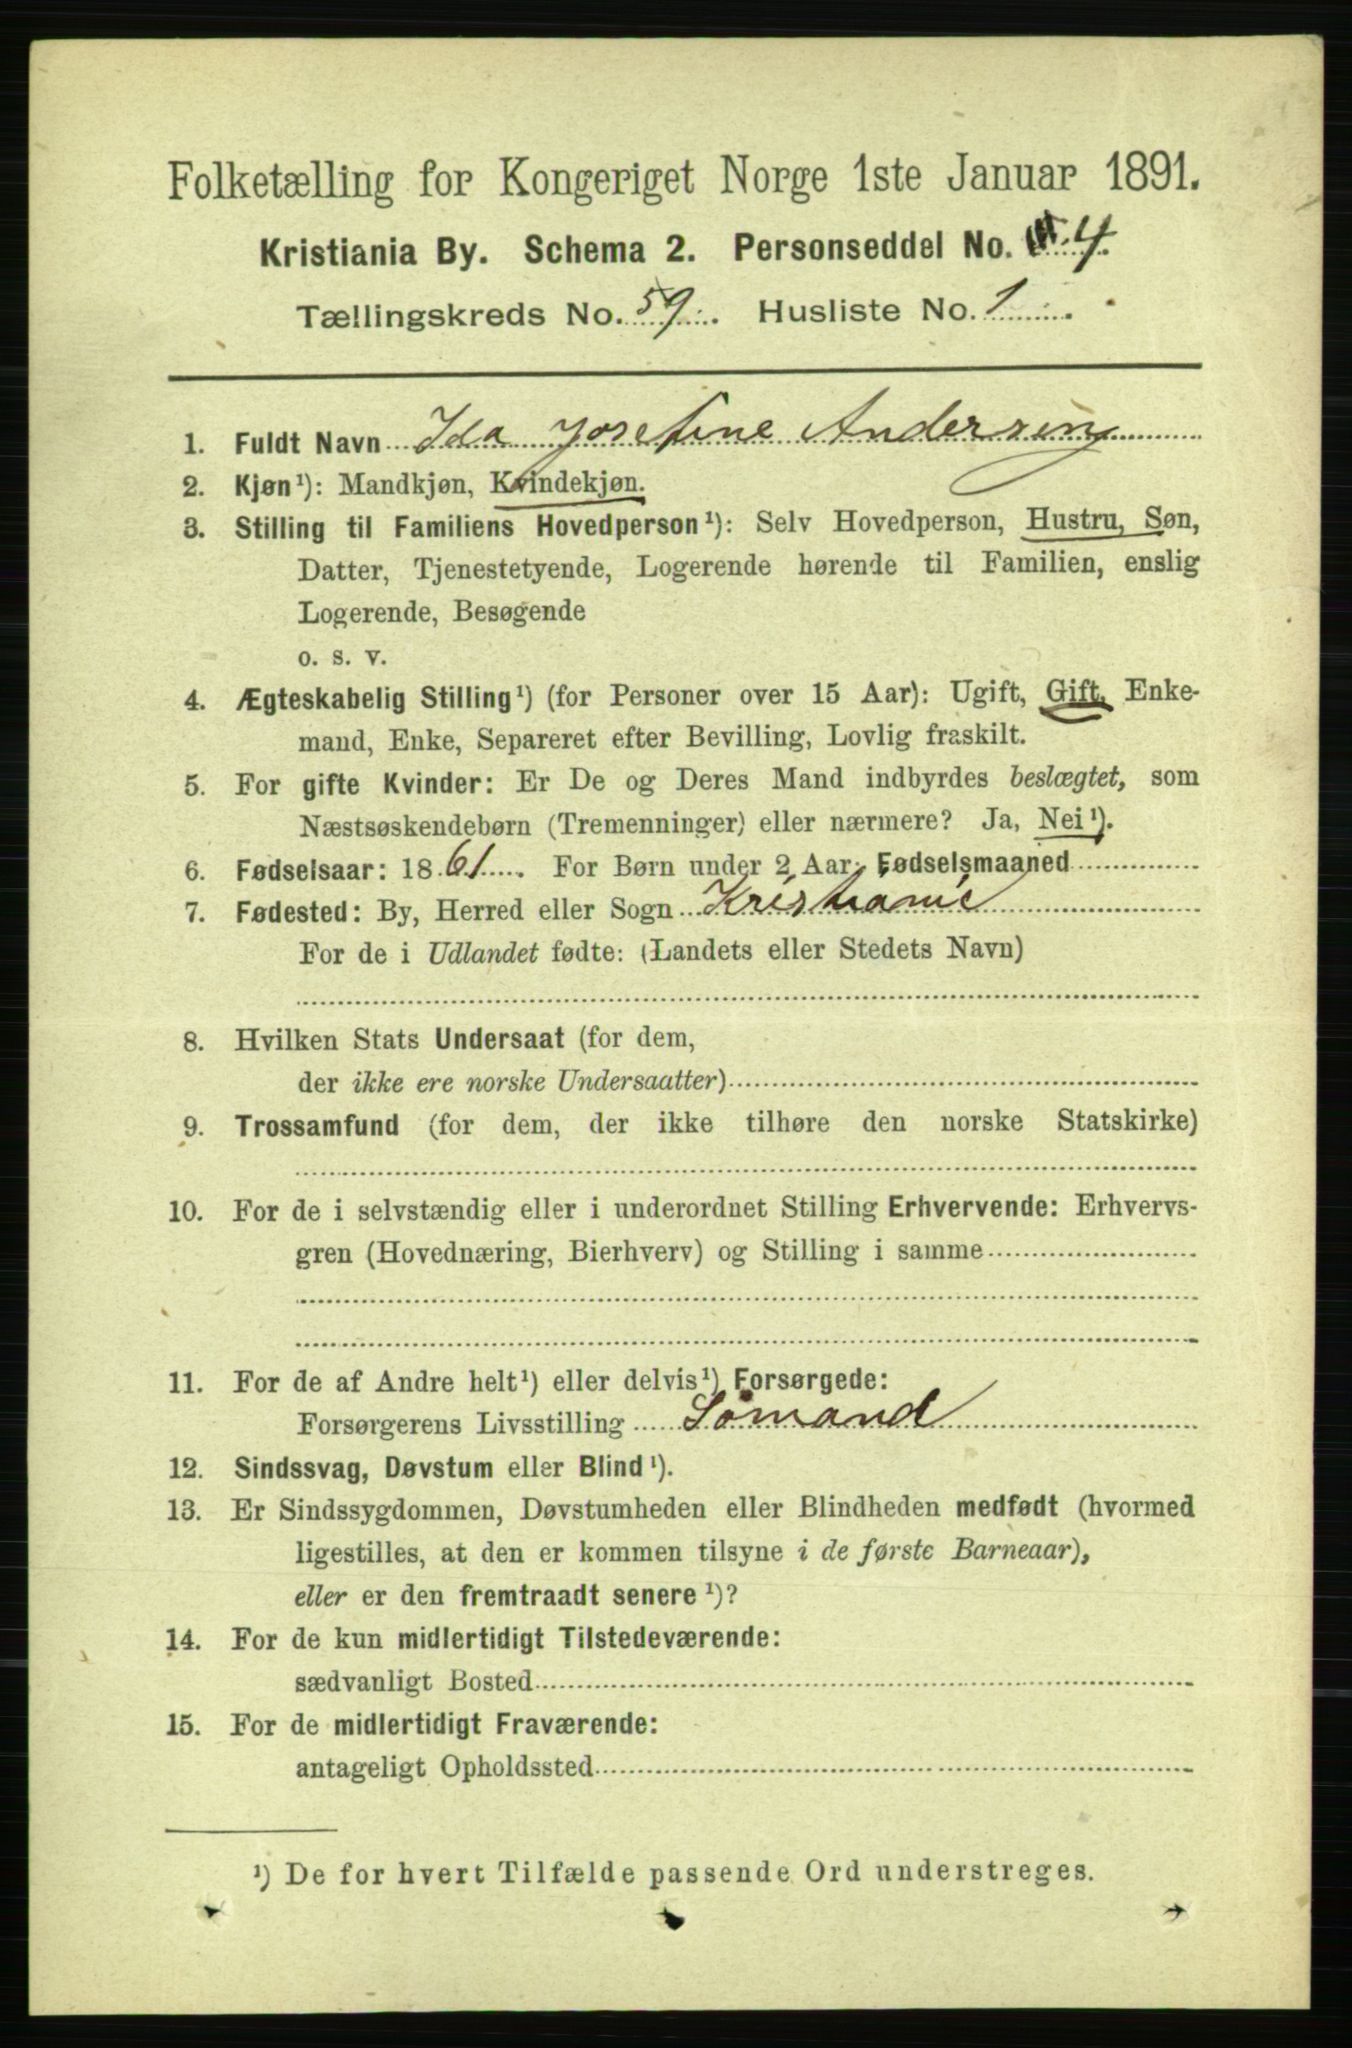 Folketælling for Kongeriget Norge 1ste Januar 1891.
Kristiania By. Schema 2. Personseddel No. 4
Tællingskreds No. 59. Husliste No. 1
1. Fuldt Navn Ida Josefine Andersen
2. Kjøn¹): Mandkjøn, Kvindekjøn.
3. Stilling til Familiens Hovedperson¹): Selv Hovedperson, Hustru, Søn,
Datter, Tjenestetyende, Logerende hørende til Familien, enslig
Logerende, Besøgende
o. s. v.
4. Ægteskabelig Stilling¹) (for Personer over 15 Aar): Ugift, Gift, Enke-
mand, Enke, Separeret efter Bevilling, Lovlig fraskilt.
5. For gifte Kvinder: Er De og Deres Mand indbyrdes beslægtet, som
Næstsøskendebørn (Tremenninger) eller nærmere? Ja, Nei¹).
6. Fødselsaar: 1861. For Børn under 2 Aar: Fødselsmaaned
7. Fødested: By, Herred eller Sogn Kristiania
For de i Udlandet fødte: (Landets eller Stedets Navn)
8. Hvilken Stats Undersaat (for dem,
der ikke ere norske Undersaatter)
9. Trossamfund (for dem, der ikke tilhøre den norske Statskirke)
10. For de i selvstændig eller i underordnet Stilling Erhvervende: Erhvervs-
gren (Hovednæring, Bierhverv) og Stilling i samme
11. For de af Andre helt¹) eller delvis¹) Forsørgede:
Forsørgerens Livsstilling Sømand
12. Sindssvag, Døvstum eller Blind¹).
13. Er Sindssygdommen, Døvstumheden eller Blindheden medfødt (hvormed
ligestilles, at den er kommen tilsyne i de første Barneaar),
eller er den fremtraadt senere¹)?
14. For de kun midlertidigt Tilstedeværende:
sædvanligt Bosted
15. For de midlertidigt Fraværende:
antageligt Opholdssted
¹) De for hvert Tilfælde passende Ord understreges.